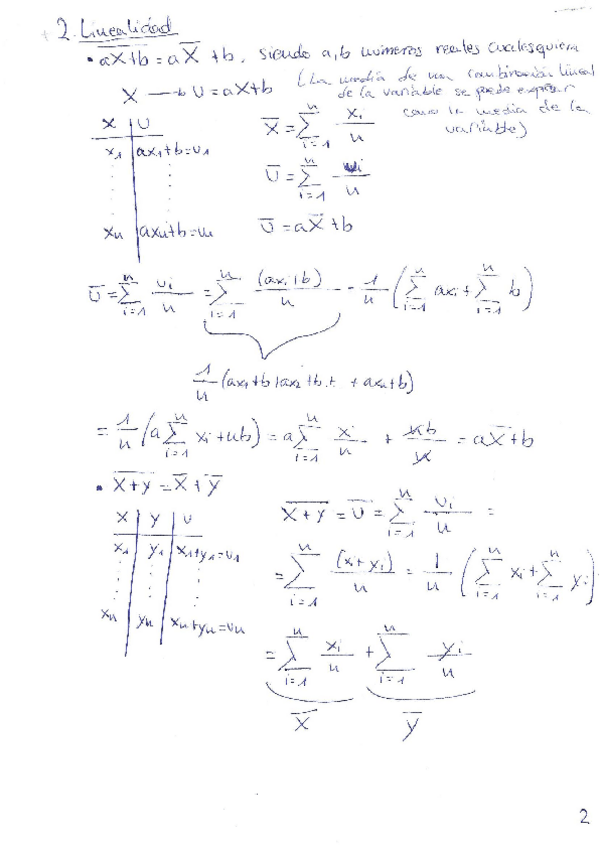 2. Linealidad
• aX+b = aX̅ + b, siendo a, b números reales cualesquiera
X → U = aX+b (La media de una combinación lineal
de la variable se puede expresar
como la media de la
variable)
X | U
x₁ | ax₁+b=u₁
xn | axn+b=un
X̅ = Σ_{i=1}^{n} xi/n
U̅ = Σ_{i=1}^{n} ui/n
U̅ = aX̅ + b
U̅ = Σ_{i=1}^{n} ui/n = Σ_{i=1}^{n} (axi+b)/n = 1/n (Σ_{i=1}^{n} axi + Σ_{i=1}^{n} b)
1/n (ax₁+b+ax₂+b+ + axn+b)
= 1/n (a Σ_{i=1}^{n} xi + nb) = a Σ_{i=1}^{n} xi/n + nb/n = aX̅ + b
• X+y = X̅ + y̅
X | Y | U
x₁ | y₁ | x₁+y₁=u₁
xn | yn | xn+yn=un
X+y = U̅ = Σ_{i=1}^{n} ui/n =
= Σ_{i=1}^{n} (xi+yi)/n = 1/n (Σ_{i=1}^{n} xi + Σ_{i=1}^{n} yi)
= Σ_{i=1}^{n} xi/n + Σ_{i=1}^{n} yi/n
X̅ y̅
2